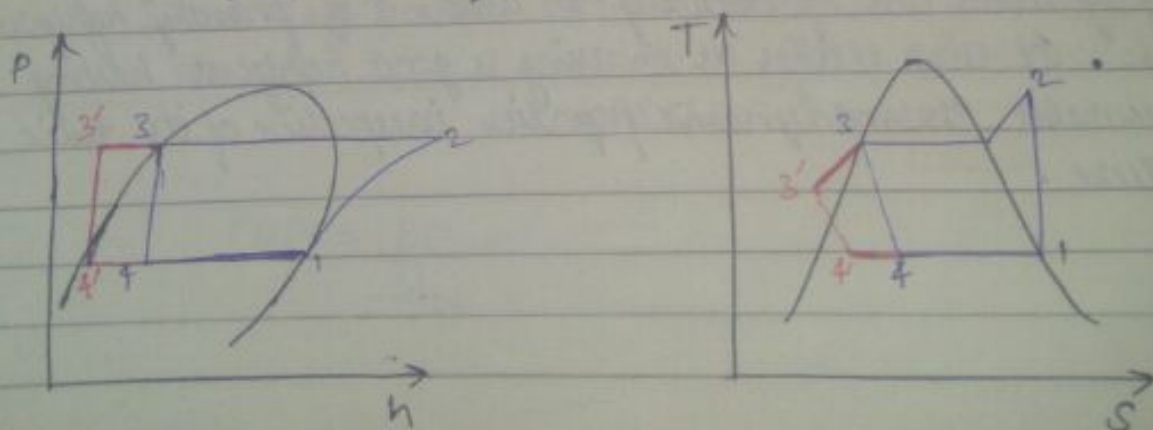 P
3'
3
2
4'
4
1
h
T
2
3
3'
4'
4
1
S